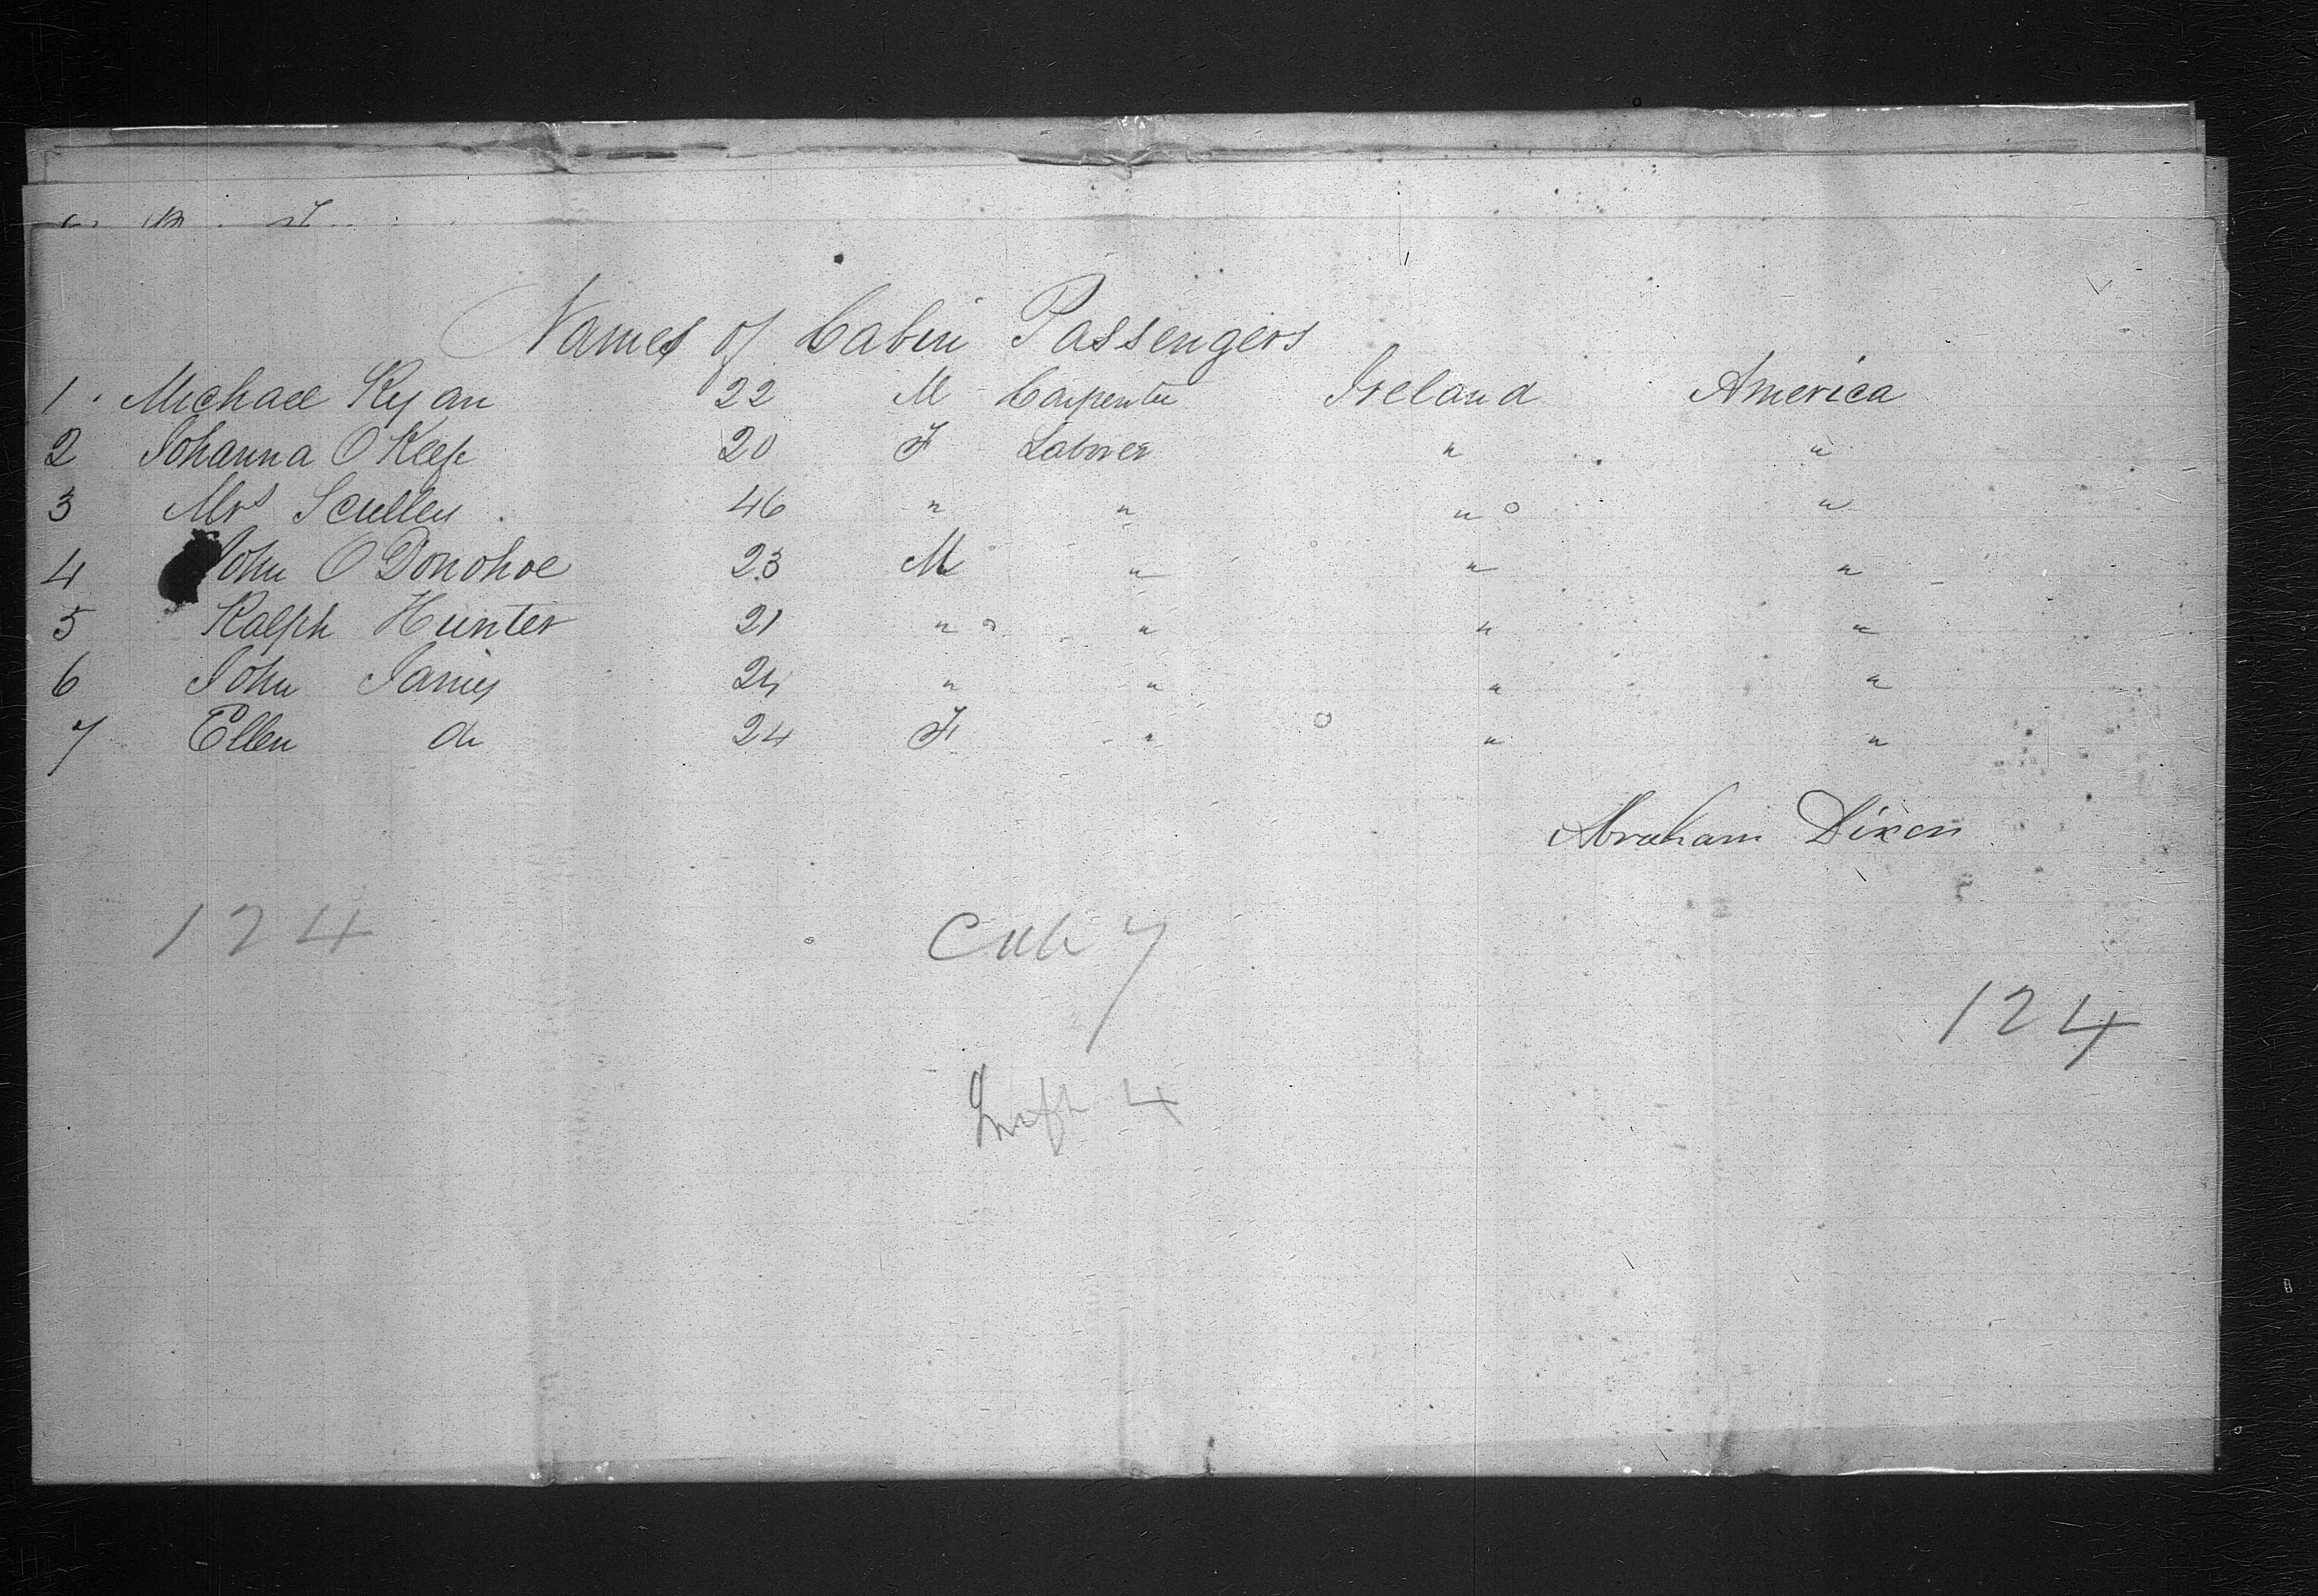 Names of Cabin Passengers
1 Michael Ryan 22 M Carpenter Ireland America
2 Johanna O Keef 20 F Laborer " " 
3 Mrs Scullen 46 " " " "
4 John O Donohoe 23 M " " "
5 Ralph Hunter 21 " " " "
6 John James 24 " " " "
7 Ellen do 24 F " " "
Abraham Dixon
124 Cab 7
124
4